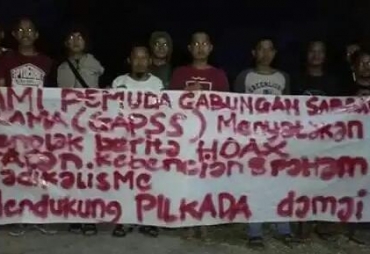 AMI PEMUDA GABUNGAN
AMA (GAPSS) Menyatakan
enolak berita HOAX
aran kebencian & Paham
adikalisme
endukung PILKADA damai